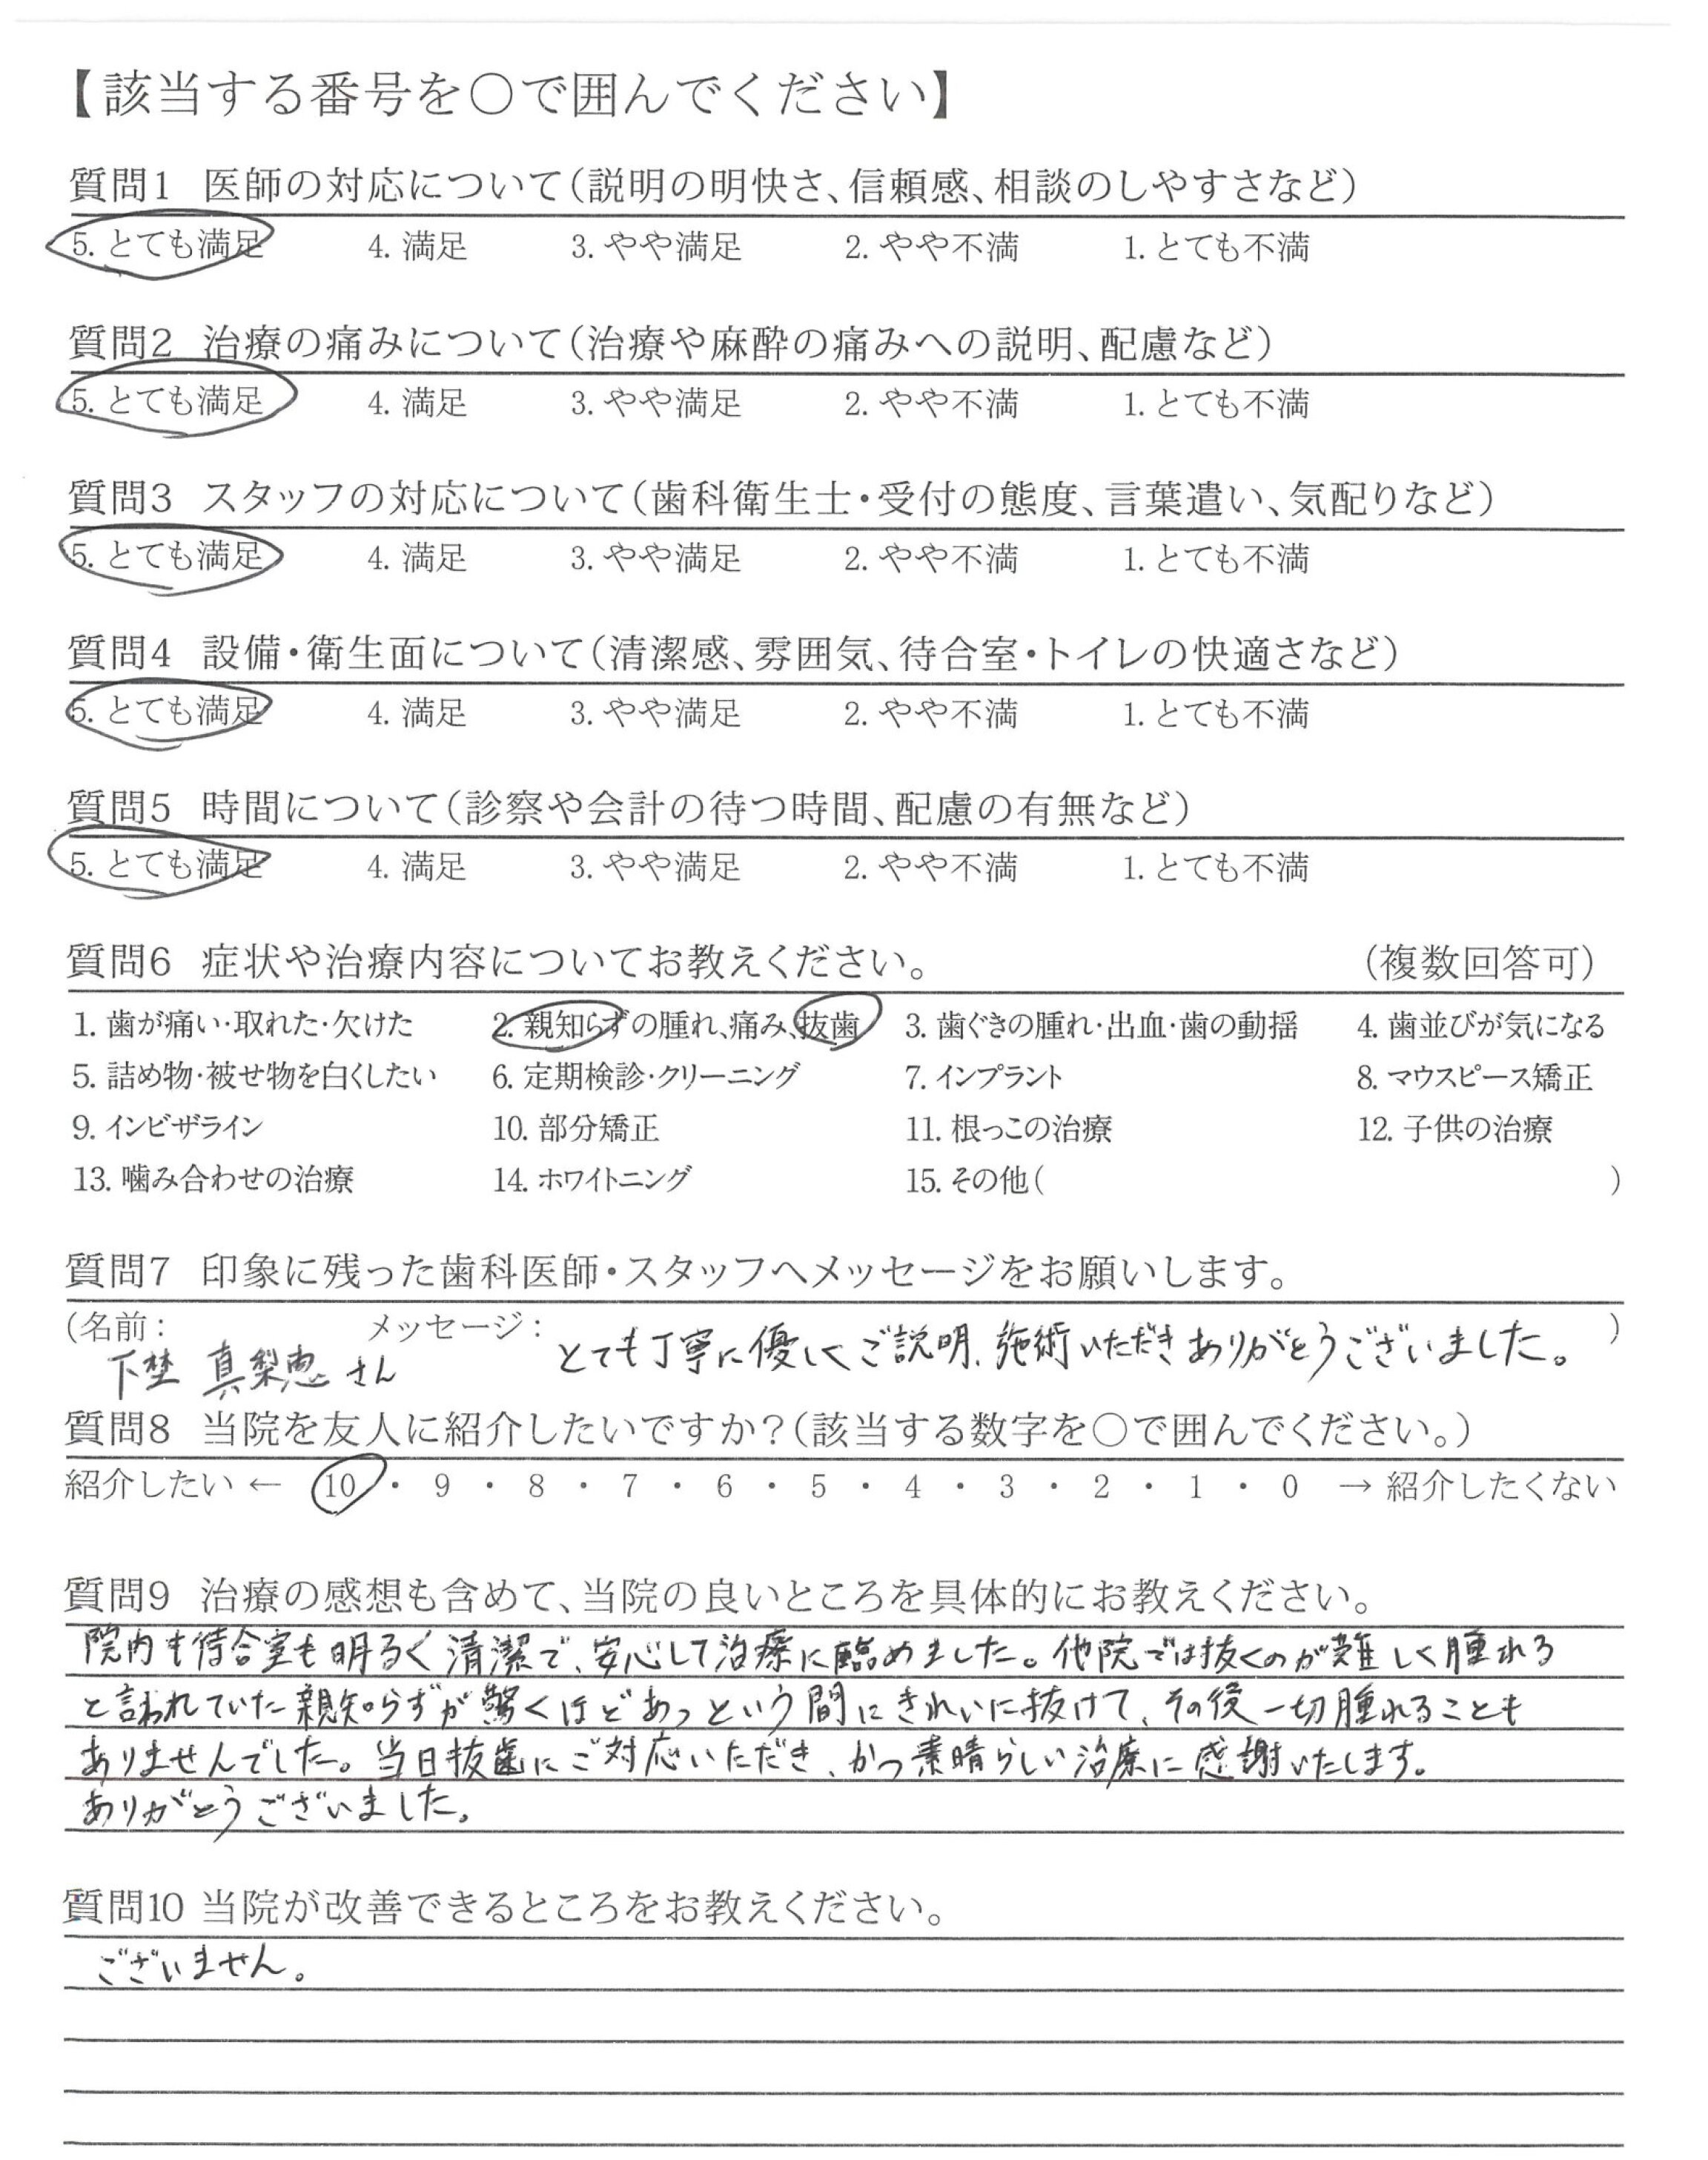 【該当する番号を○で囲んでください】
質問1 医師の対応について(説明の明快さ、信頼感、相談のしやすさなど)
5. とても満足 4. 満足 3. やや満足 2. やや不満 1. とても不満
質問2 治療の痛みについて(治療や麻酔の痛みへの説明、配慮など)
5. とても満足 4. 満足 3. やや満足 2. やや不満 1. とても不満
質問3 スタッフの対応について(歯科衛生士・受付の態度、言葉遣い、気配りなど)
5. とても満足 4. 満足 3. やや満足 2. やや不満 1. とても不満
質問4 設備・衛生面について(清潔感、雰囲気、待合室・トイレの快適さなど)
5. とても満足 4. 満足 3. やや満足 2. やや不満 1. とても不満
質問5 時間について(診察や会計の待つ時間、配慮の有無など)
5. とても満足 4. 満足 3. やや満足 2. やや不満 1. とても不満
質問6 症状や治療内容についてお教えください。 (複数回答可)
1. 歯が痛い・取れた・欠けた 2. 親知らずの腫れ、痛み、抜歯 3. 歯ぐきの腫れ・出血・歯の動揺 4. 歯並びが気になる
5. 詰め物・被せ物を白くしたい 6. 定期検診・クリーニング 7. インプラント 8. マウスピース矯正
9. インビザライン 10. 部分矯正 11. 根っこの治療 12. 子供の治療
13. 噛み合わせの治療 14. ホワイトニング 15. その他( )
質問7 印象に残った歯科医師・スタッフへメッセージをお願いします。
(名前: メッセージ: とても丁寧に優しくご説明、施術いただきありがとうございました。 )
真梨恵 さん
質問8 当院を友人に紹介したいですか?(該当する数字を○で囲んでください。)
紹介したい ← 10 ・ 9 ・ 8 ・ 7 ・ 6 ・ 5 ・ 4 ・ 3 ・ 2 ・ 1 ・ 0 → 紹介したくない
質問9 治療の感想も含めて、当院の良いところを具体的にお教えください。
院内も待合室も明るく清潔で、安心して治療に臨めました。他院では抜くのが難しく腫れる
と言われていた親知らずが驚くほどあっという間にきれいに抜けて、その後一切腫れることも
ありませんでした。当日抜歯にご対応いただき、かつ素晴らしい治療に感謝いたします。
ありがとうございました。
質問10 当院が改善できるところをお教えください。
ございません。